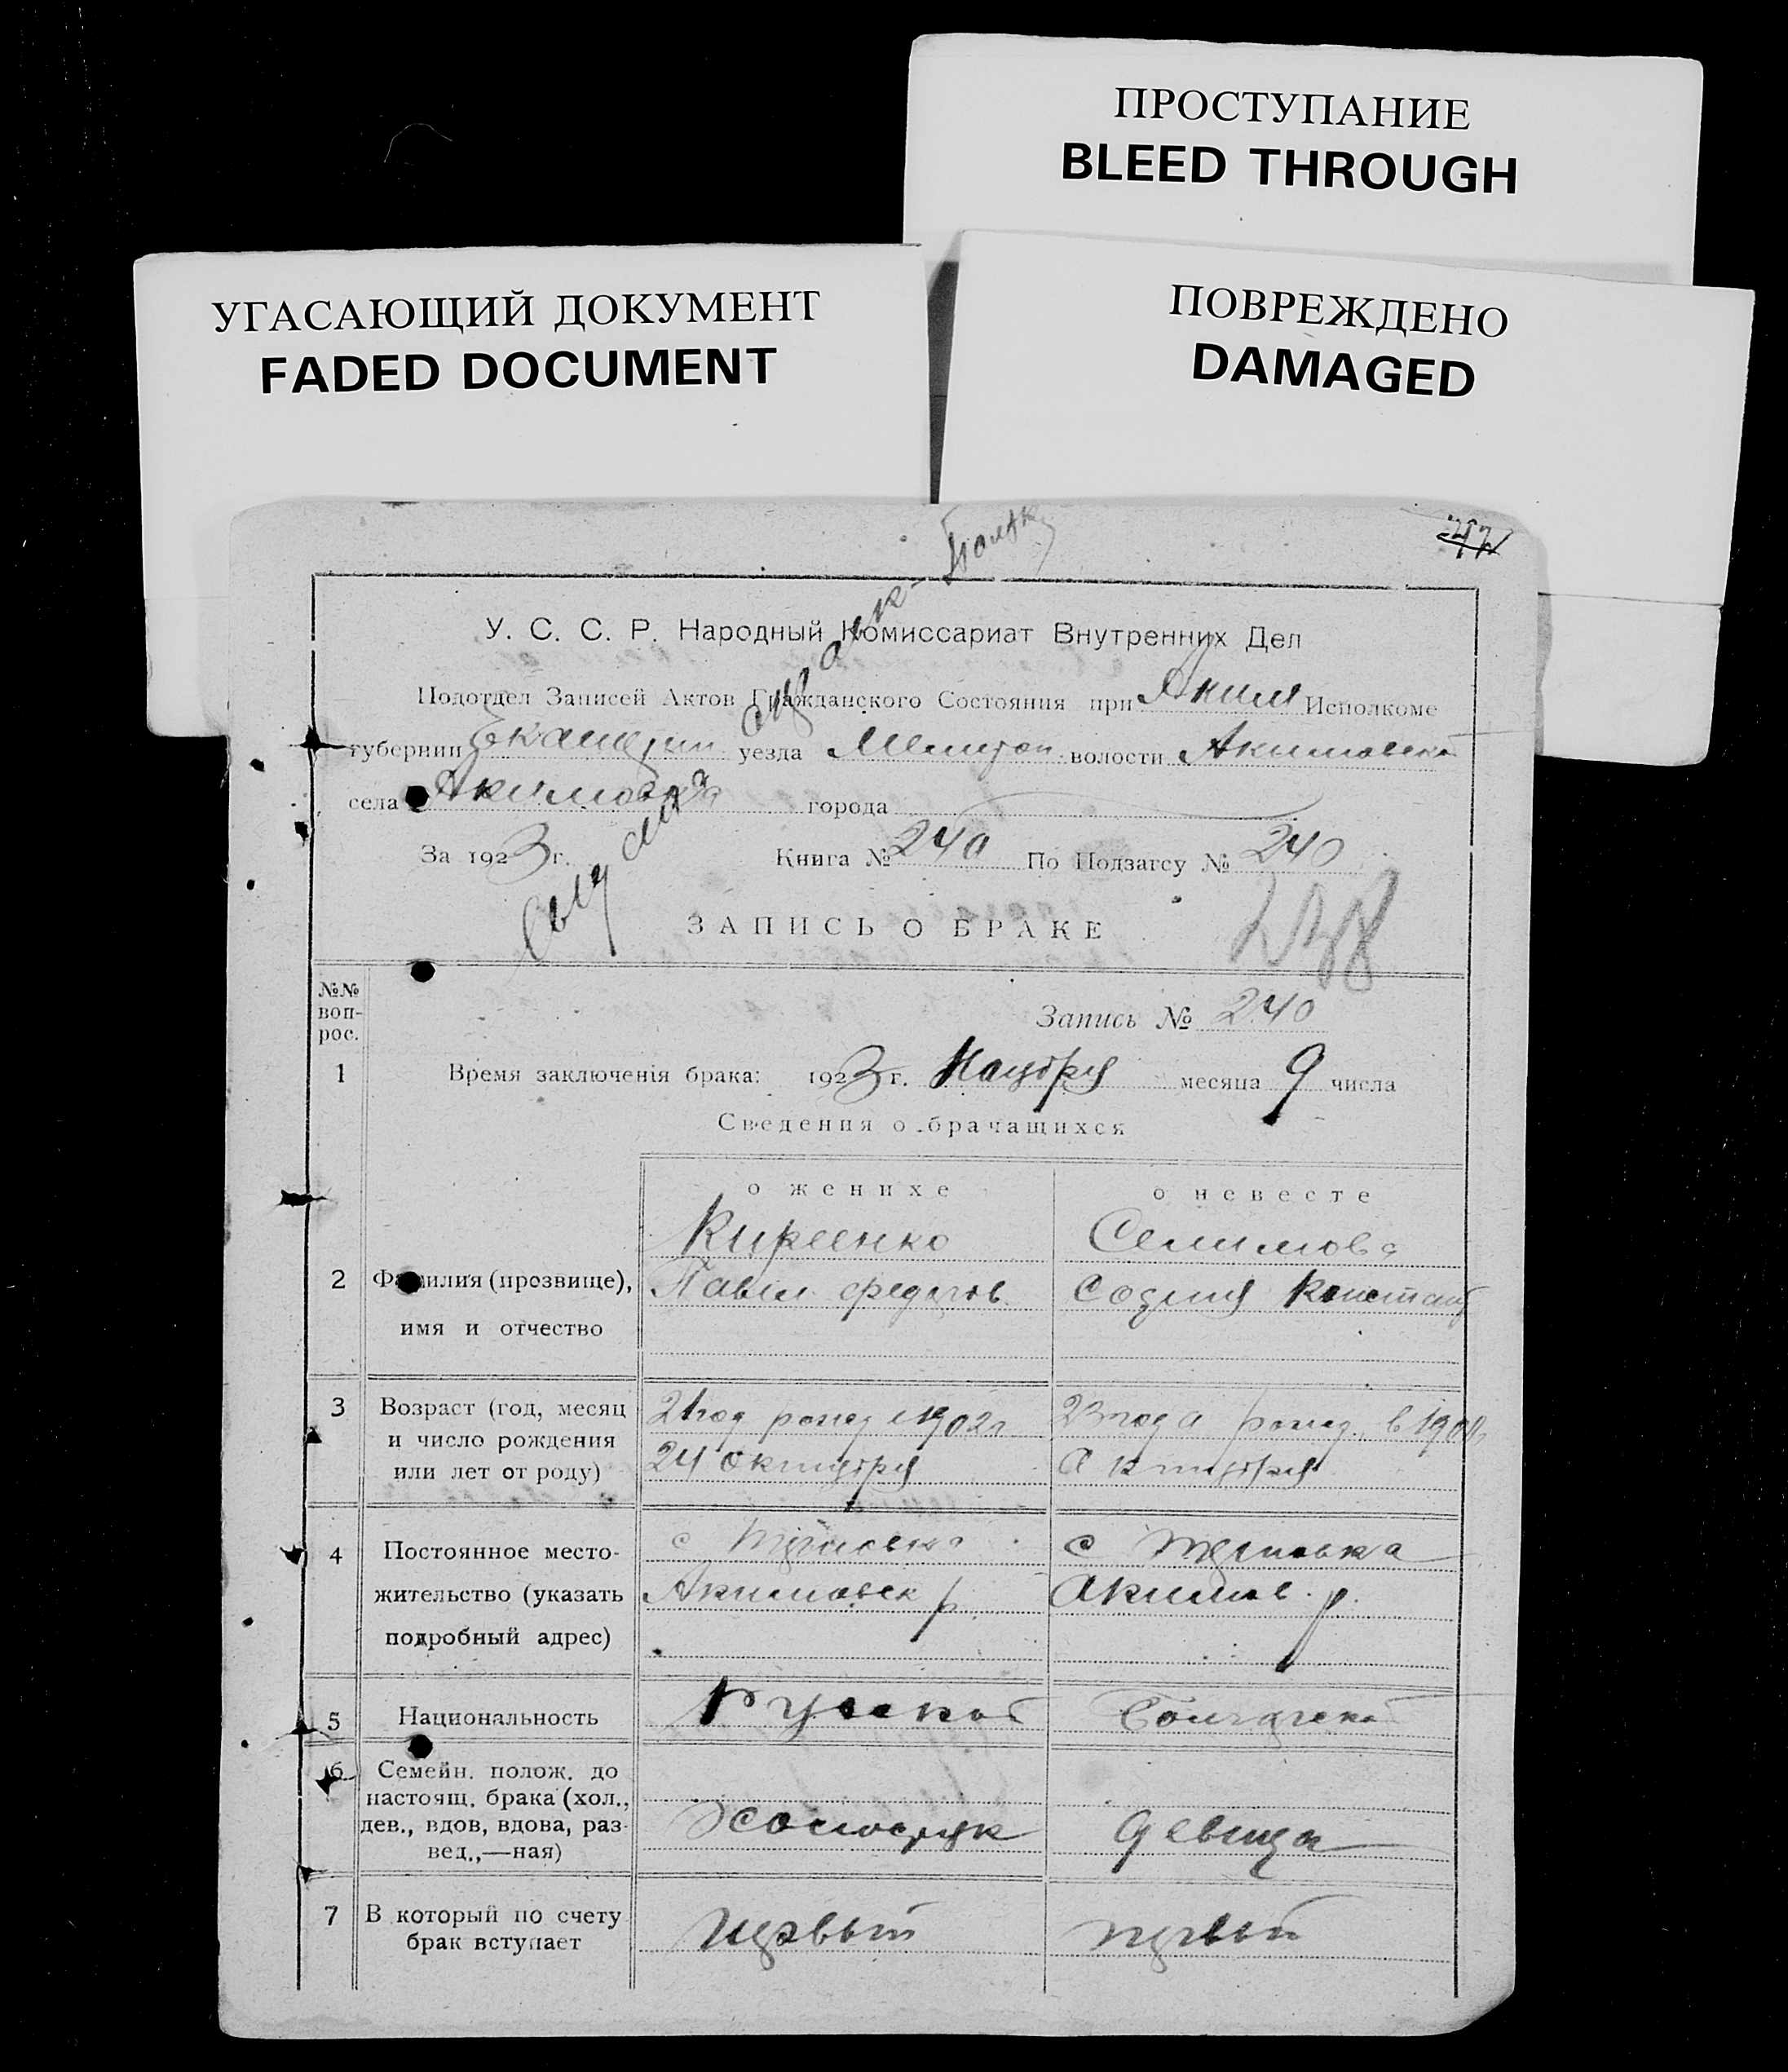 ПРОСТУПАНИЕ
BLEED THROUGH
УГАСАЮЩИЙ ДОКУМЕНТ
FADED DOCUMENT
ПОВРЕЖДЕНО
DAMAGED
У. С. С. Р. Народный Комиссариат Внутренних Дел
Подотдел Записей Актов Гражданского Состояния при Аким Исполкоме
губернии уезда Мелитоп волости Акимовской
села Акимовка города
За 1923 г. Книга № 240 По Подзагсу № 240
ЗАПИСЬ О БРАКЕ
№№ воп-рос.
Запись № 240
1 Время заключенія брака: 1923 г. Ноября месяца 9 числа
Сведения о брачащихся
о женихе о невесте
Киреенко
2 Фамилия (прозвище), Павел
имя и отчество
3 Возраст (год, месяц 21 год рожд 1902 г 23 года рожд. в
и число рождения 24 октября октября
или лет от роду)
4 Постоянное место-
жительство (указать Акимовск р Акимов. р.
подробный адрес)
5 Национальность Руский
6 Семейн. полож. до
настоящ. брака (хол.,
дев., вдов, вдова, раз- девица
вед.,—ная)
7 В который по счету первый первый
брак вступает